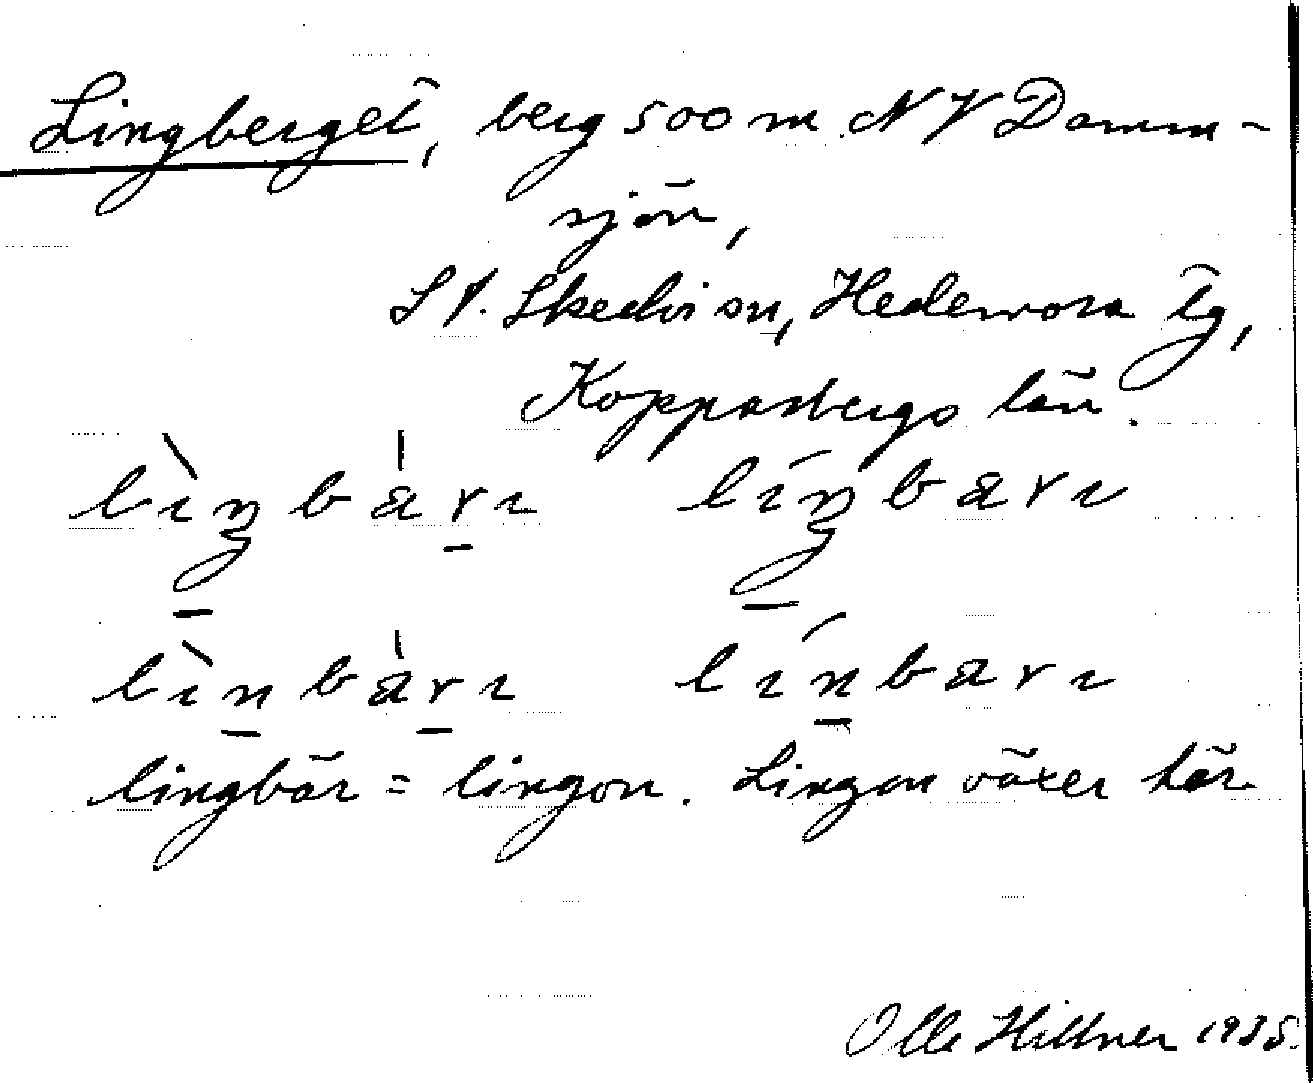 Lingberget, berg 500 m NV Damm-
sjön,
St. Skedvi sn, Hedemora tg,
Kopparbergs län.
lìŋbàrɩ líŋbarɩ
lìnbàrɩ línbarɩ
lingbär = lingon. Lingon växer här
Olle Hillner 1935.